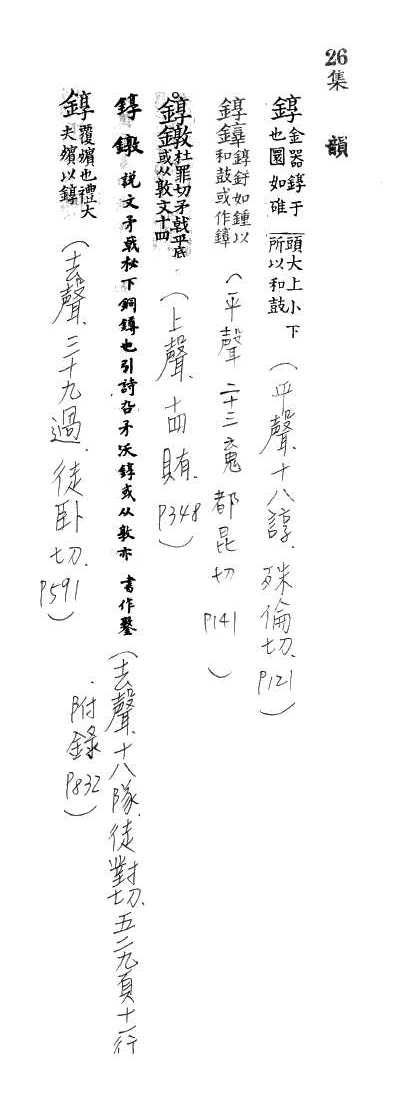 26 集韻
錞 金器錞于也圜如碓頭大上小下所以和鼓 (平聲.十八諄.殊倫切.P121)
錞 錞釪如鍾以和鼓或作 (平聲 二十三魂 都昆切 P141)
錞鐓 杜罪切矛戟平底或从敦文十四 (上聲.十四賄.P348)
錞鐓 說文矛戟柲下銅鐏也引詩厹矛沃錞或从敦亦書作鐜 (去聲.十八隊.徒對切.五二九頁十一行
.附錄 P832)
錞 覆殯也禮大夫殯以錞 (去聲.三十九過.徒卧切.P591)